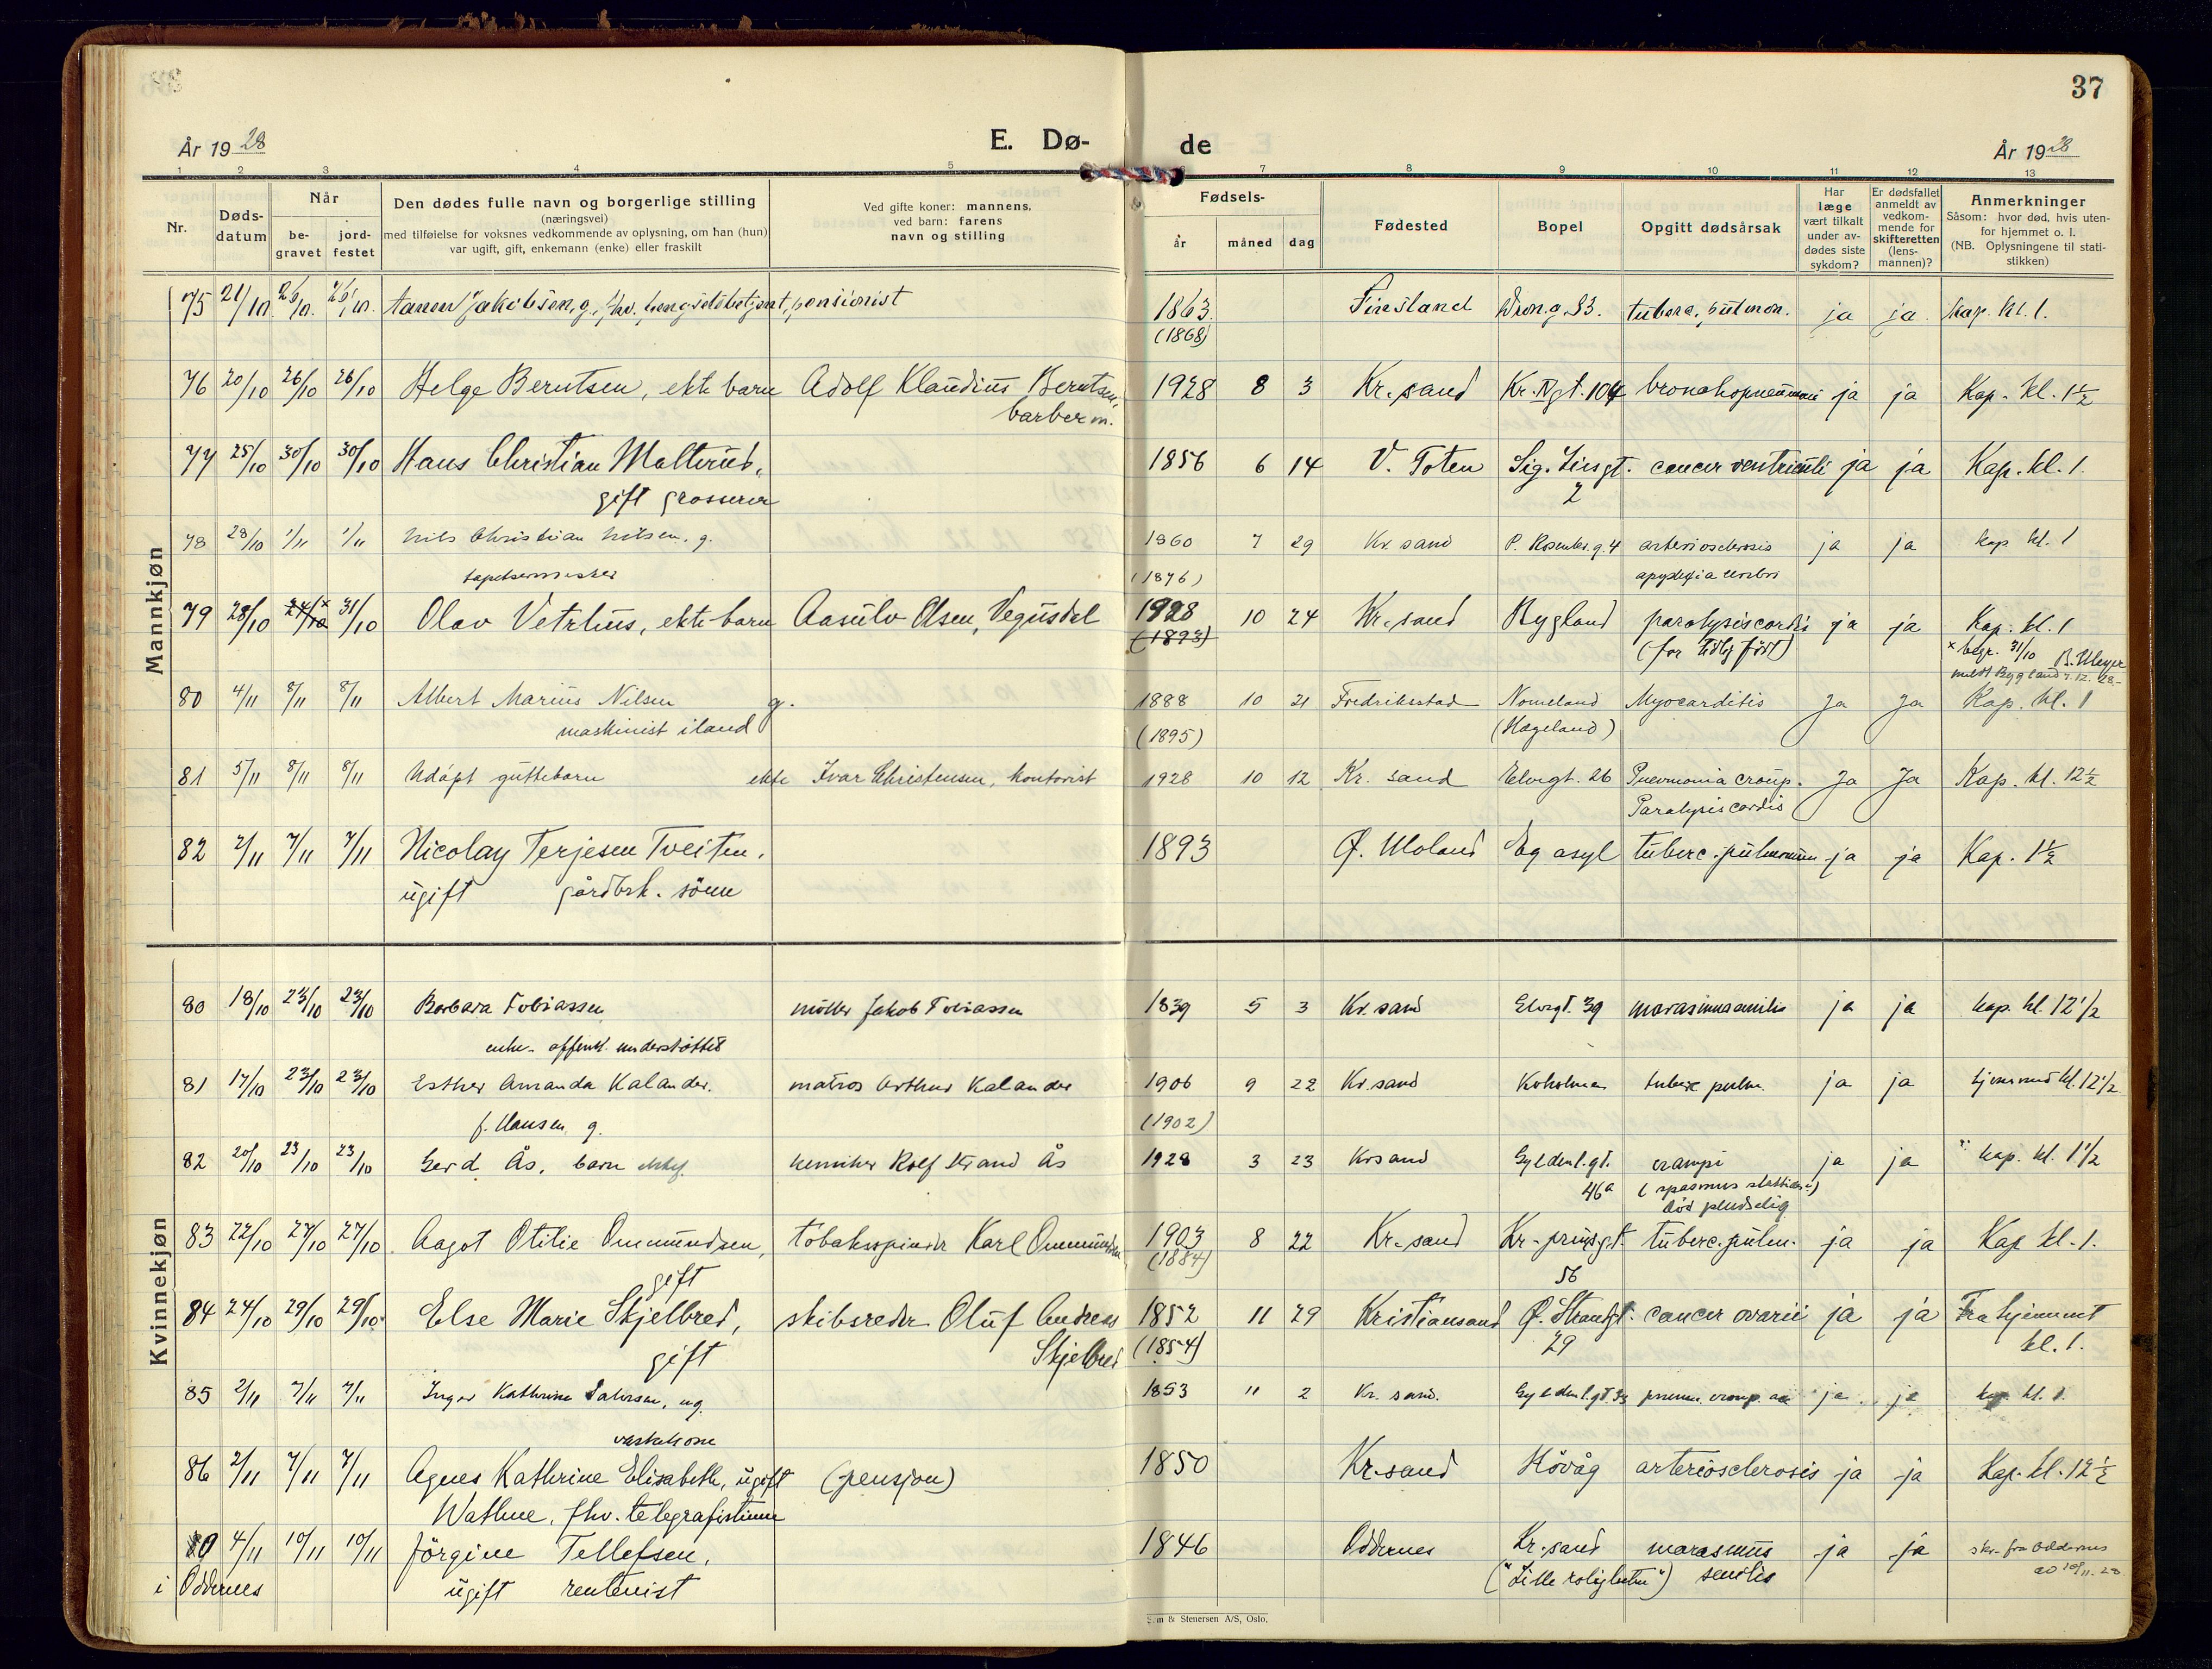 37
År 1928
E. Dø-
de
År 1928
1 2 3 4 5 6 7 8 9 10 11 12 13
Nr.
Døds-
datum
Når
be-
gravet
jord-
festet
Den dødes fulle navn og borgerlige stilling
(næringsvei)
med tilføielse for voksnes vedkommende av oplysning, om han (hun)
var ugift, gift, enkemann (enke) eller fraskilt
Ved gifte koner: mannens,
ved barn: farens
navn og stilling
Fødsels-
år
måned
dag
Fødested
Bopel
Opgitt dødsårsak
Har
læge
vært tilkalt
under av-
dødes siste
sykdom?
Er dødsfallet
anmeldt av
vedkom-
mende for
skifteretten
(lens-
mannen)?
Anmerkninger
Såsom: hvor død, hvis uten-
for hjemmet o. l.
(NB. Oplysningene til stati-
stikken)
Mannkjøn
75 21/10 26/10 26/10 Jakobsen, g., fhv. pensionist 1863 Finsland Dron.g. 83. tuberc. pulmon. ja ja Kap. kl. 1.
(1868)
76 20/10 26/10 26/10 Helge Berntsen, ekte barn Adolf Klaudius Berntsen, 1928 8 3 Kr.sand Kr. IV gt. 104 bronchopneumoni ja ja Kap. kl. 1½
barberm.
77 25/10 30/10 30/10 Hans Christian Malterud, 1856 6 14 V. Toten Sig. gt. cancer ventriculi ja ja Kap. kl. 1.
gift grosserer 2
78 28/10 1/11 1/11 Nils Christian Nilsen, g. 1860 7 29 Kr. sand P. Rosenkr. g. 4 arteriosclerosis ja ja Kap. kl. 1
tapetsermester (1876) apoplexia cerebri
79 28/10 24/10 x 31/10 Olav Vetrhus, ekte barn Aasulv Olsen, Vegusdal 1928 10 24 Kr.sand Bygland paralysis cordis ja ja Kap. kl. 1
(1893) (for tidlig født) x begr. 31/10
meldt Bygland 7.12.28.-
80 4/11 8/11 8/11 Albert Marius Nilsen g. 1888 10 21 Fredriksstad Nomeland Myocarditis Ja Ja Kap. kl. 1
maskinist iland (1895) (Hægeland)
81 5/11 8/11 8/11 Udøpt guttebarn ekte Ivar Christensen, kontorist 1928 10 12 Kr. sand Elvegt. 26 Pneumonia croup. Ja Ja Kap. kl. 12½
Paralysis cordis
82 2/11 7/11 7/11 Nicolay Terjesen Tveiten, 1893 Ø. Moland Eg asyl tuberc. pulmonum ja ja Kap. 1½
ugift gårdbrk. sønn
Kvinnekjøn
80 18/10 23/10 23/10 Barbara Tobiassen møller Jakob Tobiassen 1839 5 3 Kr. sand Elvegt. 39 marasmus senilis ja ja kap. kl. 12½
enke. offentl. understøttet
81 17/10 23/10 23/10 Esther Amanda Kalander. matros Arthur Kalander 1906 9 22 Kr. sand Kuholmen tuberc pulm. ja ja kl. 12½
f. Hansen g. (1902)
82 20/10 23/10 23/10 Gerd Ås, barn kemiker Rolf Strand Ås 1928 3 23 Krsand Gyldenl. gt. crampi ja ja kap. kl. 1½
46a (spasmus
död pludselig
83 22/10 27/10 27/10 Aagot Otilie Ommundsen, tobaksspinder Karl Ommundsen 1903 8 22 Kr.sand Kr. prinsgt. tuberc. pulm. ja ja Kap kl. 1.
gift (1884) 56
84 24/10 29/10 29/10 Else Marie Skjelbred, skibsreder Oluf Andreas 1852 11 29 Kristiansand Ø. Strandgt. cancer ovarii ja ja Fra hjemmet
gift Skjelbred (1854) 29 kl. 1.
85 2/11 7/11 7/11 Inger Kathrine ug. 1853 11 2 Kr. sand. Gyldenl. gt. pneum. croup. ja ja kap. kl. 1.
vaskekone
86 2/11 7/11 7/11 Agnes Kathrine Elisabeth, ugift (pensjon) 1850 Kr.sand Høvåg arteriosclerosis ja ja Kap. kl. 12½
Wathne, fhv. telegrafistinne
4/11 10/11 10/11 Jörgine Tellefsen, 1846 Oddernes Kr.sand marasmus ja ja skr. fra Oddernes
i Oddernes ugift rentenist ("Lille roligheten") senilis
Sem & Stenersen A/S, Oslo.